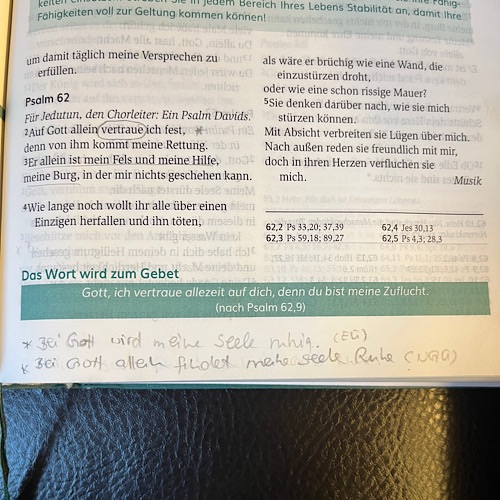 keiten einsetzen
streben Sie in jedem Bereich Ihres Lebens Stabilität an, damit Ihre
Fähigkeiten voll zur Geltung kommen können!
um damit täglich meine Versprechen zu
erfüllen.
Psalm 62
Für Jedutun, den Chorleiter: Ein Psalm Davids.
2Auf Gott allein vertraue ich fest, *
denn von ihm kommt meine Rettung.
3Er allein ist mein Fels und meine Hilfe,
meine Burg, in der mir nichts geschehen kann.
4Wie lange noch wollt ihr alle über einen
Einzigen herfallen und ihn töten,
als wäre er brüchig wie eine Wand, die
einzustürzen droht,
oder wie eine schon rissige Mauer?
5Sie denken darüber nach, wie sie mich
stürzen können.
Mit Absicht verbreiten sie Lügen über mich.
Nach außen reden sie freundlich mit mir,
doch in ihren Herzen verfluchen sie
mich. Musik
62,2 Ps 33,20; 37,39
62,3 Ps 59,18; 89,27
62,4 Jes 30,13
62,5 Ps 4,3; 28,3
Das Wort wird zum Gebet
Gott, ich vertraue allezeit auf dich, denn du bist meine Zuflucht.
(nach Psalm 62,9)
* Bei Gott wird meine Seele ruhig. (EÜ)
* Bei Gott allein findet meine Seele Ruhe (NGÜ)